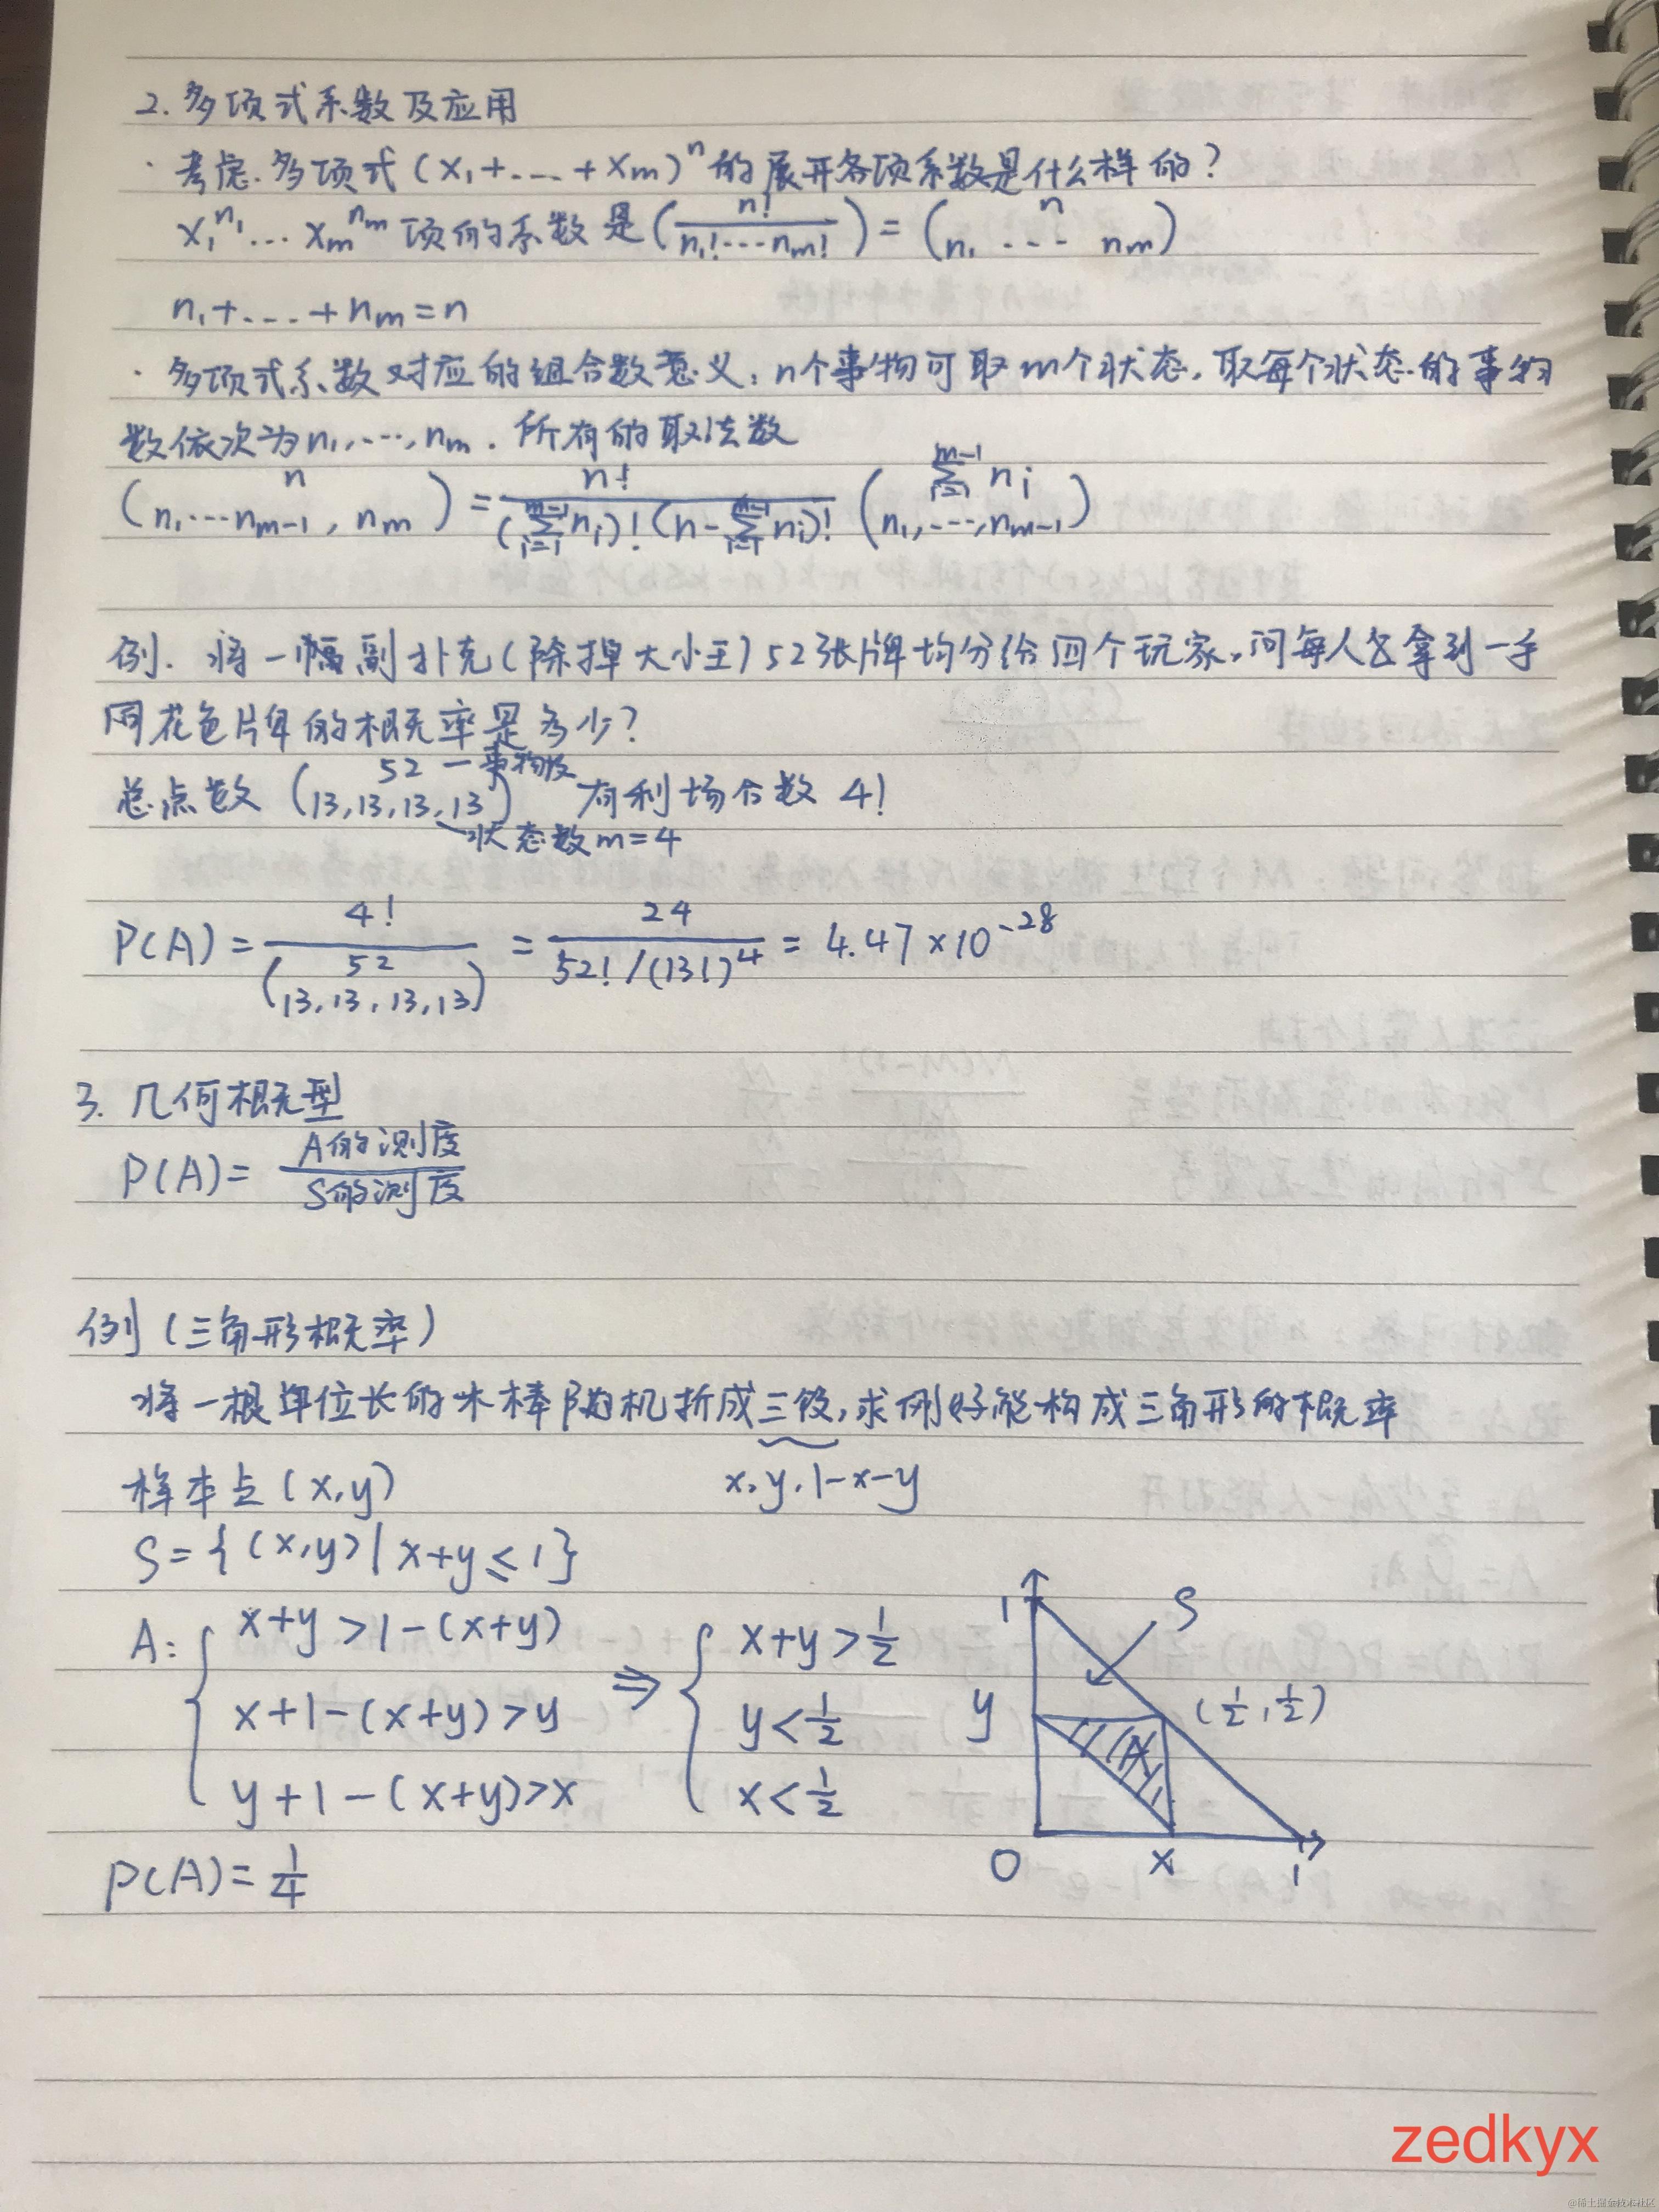 2. 多项式系数及应用
· 考虑. 多项式 (x₁+...+xₘ)ⁿ 的展开各项系数是什么样的?
x₁^n₁ ... xₘ^nₘ 项的系数是 (n!/(n₁!...nₘ!)) = (n / n₁ ... nₘ)
n₁+...+nₘ=n
· 多项式系数对应的组合数意义: n个事物可取m个状态, 取每个状态的事物
数依次为n₁,...,nₘ. 所有的取法数
(n / n₁...nₘ₋₁, nₘ) = n!/((∑_{i=1}^{m-1} nᵢ)! (n-∑_{i=1}^{m-1} nᵢ)!) (∑_{i=1}^{m-1} nᵢ / n₁,...,nₘ₋₁)
例. 将一幅副扑克(除掉大小王)52张牌均分给四个玩家, 问每人各拿到一手
同花色牌的概率是多少?
总点数 (52 / 13,13,13,13) 有利场合数 4!
事物数
状态数m=4
P(A) = 4!/(52 / 13,13,13,13) = 24/(52!/(13!)⁴) = 4.47×10⁻²⁸
3. 几何概型
P(A) = A的测度/S的测度
例(三角形概率)
将一根单位长的木棒随机折成三段, 求刚好能构成三角形的概率
样本点(x,y) x, y, 1-x-y
S={(x,y)|x+y≤1}
A: { x+y>1-(x+y) ⇒ { x+y>1/2
x+1-(x+y)>y y<1/2
y+1-(x+y)>x x<1/2
P(A)=1/4
1
S
y
(1/2,1/2)
A
0 x 1
zedkyx
@稀土掘金技术社区